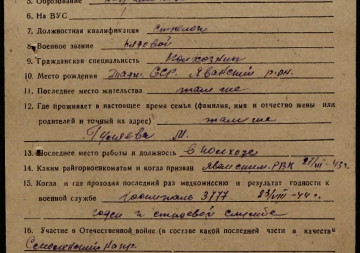 5. Образование
6. На ВУС
7. Должностная квалификация стрелок
8. Военное звание рядовой
9. Гражданская специальность Колхозник
10. Место рождения Тадж. ССР. Яванский р-он.
11. Последнее место жительства там же
12. Где проживает в настоящее время семья (фамилия, имя и отчество жены или
родителей и точный их адрес) там же
М.
13. Последнее место работы и должность в колхозе
14. Каким райгорвоенкоматом и когда призван Яванским РВК
15. Когда и где проходил последний раз медкомиссию и результат годности к
военной службе госпиталь 3777 44 г.
годен к строевой службе
16. Участие в Отечественной войне (в составе какой последней части в качестве